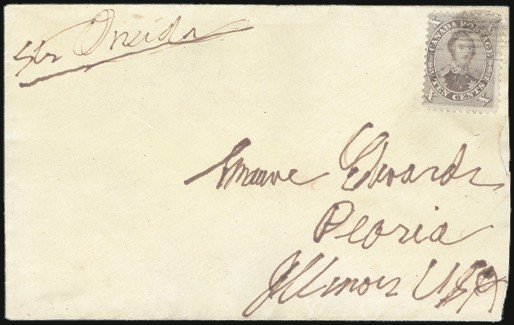 Str Oneida
CANADA POSTAGE
TEN CENTS
Edwards
Peoria
Illinois USA